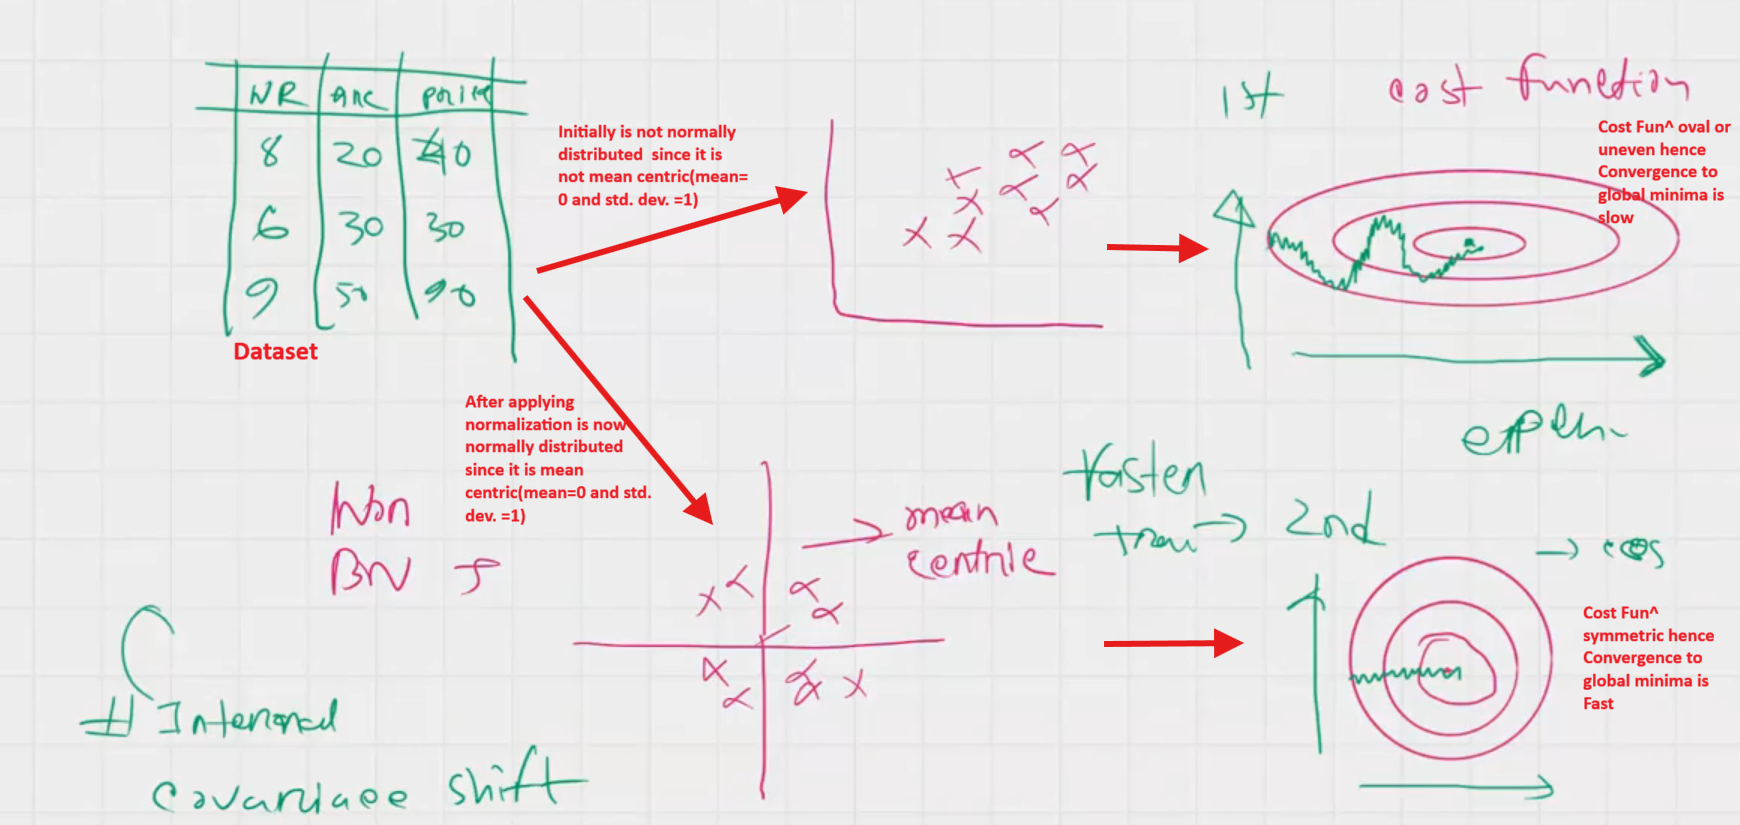 NR
8
20
6
30
30
9
50
90
Dataset
Initially is not normally
distributed since it is
not mean centric(mean=
0 and std. dev. =1)
1st
cost function
Cost Fun^ oval or
uneven hence
Convergence to
global minima is
slow
After applying
normalization is now
normally distributed
since it is mean
centric(mean=0 and std.
dev. =1)
BN
mean
centric
2nd
Cost Fun^
symmetric hence
Convergence to
global minima is
Fast
# Internal
covariace shift